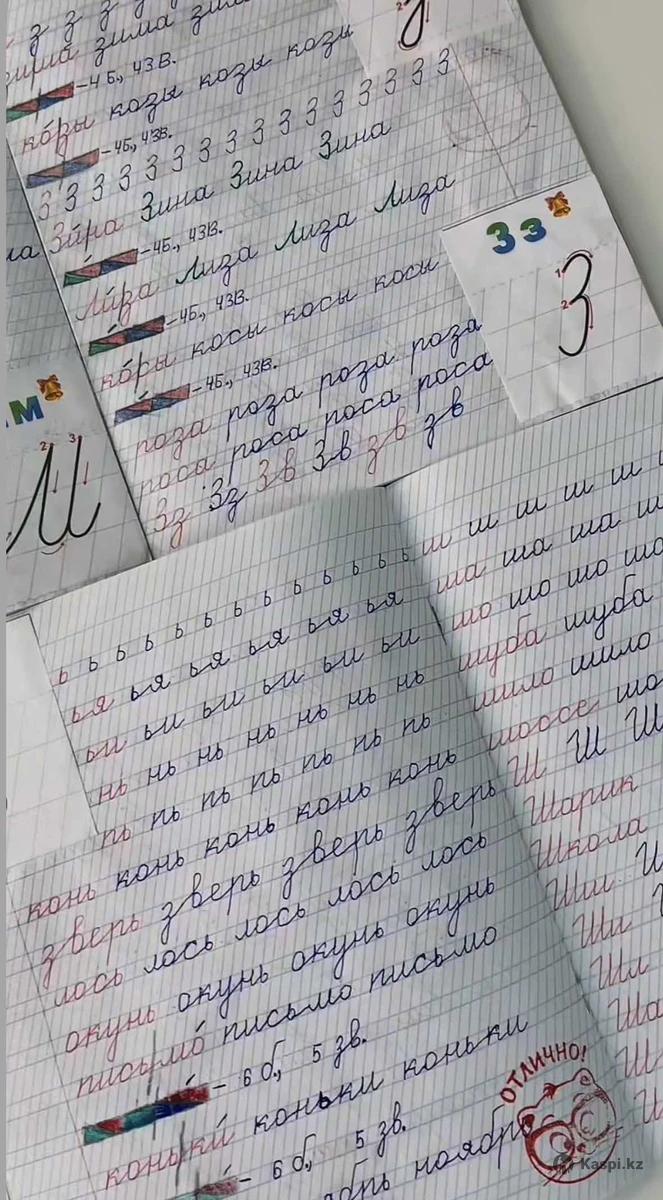 з з з з
зима зима зима
-4б., 4зв.
козы козы козы козы
-4б., 4зв.
З З З З З З З З З З З З З З З З
Зина Зина Зина Зина
-4б., 4зв.
Лиза Лиза Лиза Лиза
-4б., 4зв.
косы косы косы косы
-4б., 4зв.
роза роза роза роза
роса роса роса роса
Зз Зз Зв Зв зв зв
Зз
1
2
м
2 3
ь ь ь ь ь ь ь ь ь ь ь ь ь
ья ья ья ья ья ья
ьи ьи ьи ьи ьи ьи
нь нь нь нь нь нь нь
пь пь пь пь пь пь пь
конь конь конь конь конь
зверь зверь зверь зверь
лось лось лось лось лось
окунь окунь окунь окунь
письмо письмо письмо
- 6 б., 5 зв.
коньки коньки коньки
- 6 б., 5 зв.
ноябрь
ш ш ш ш ш ш
ша ша ша ш
шо шо шо шо
шуба шуба
шило шило
шоссе шо
Ш Ш Ш
Шарик
Школа
Ши Ш
Ши
Шл
Ша
Ш
ОТЛИЧНО!
Kaspi.kz